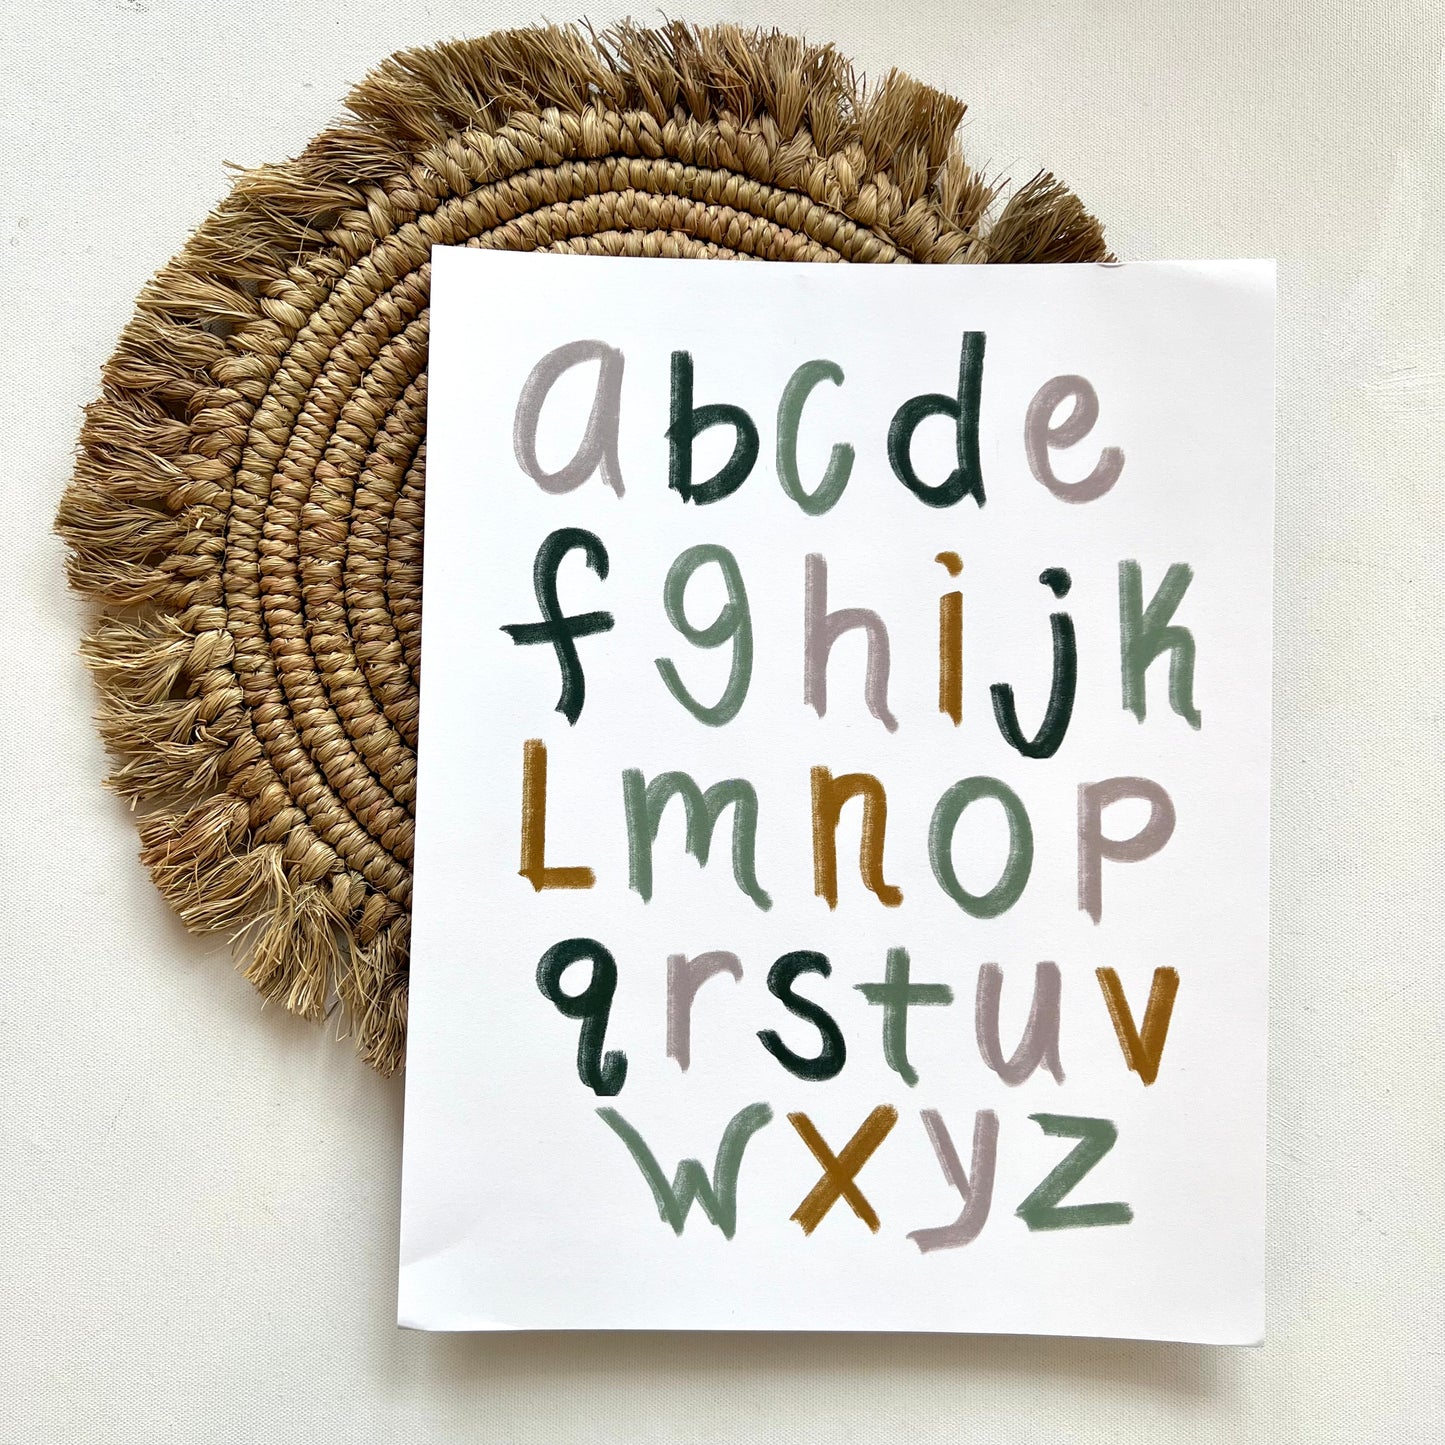 abcde
fghijk
Lmnop
qrstuv
wxyz